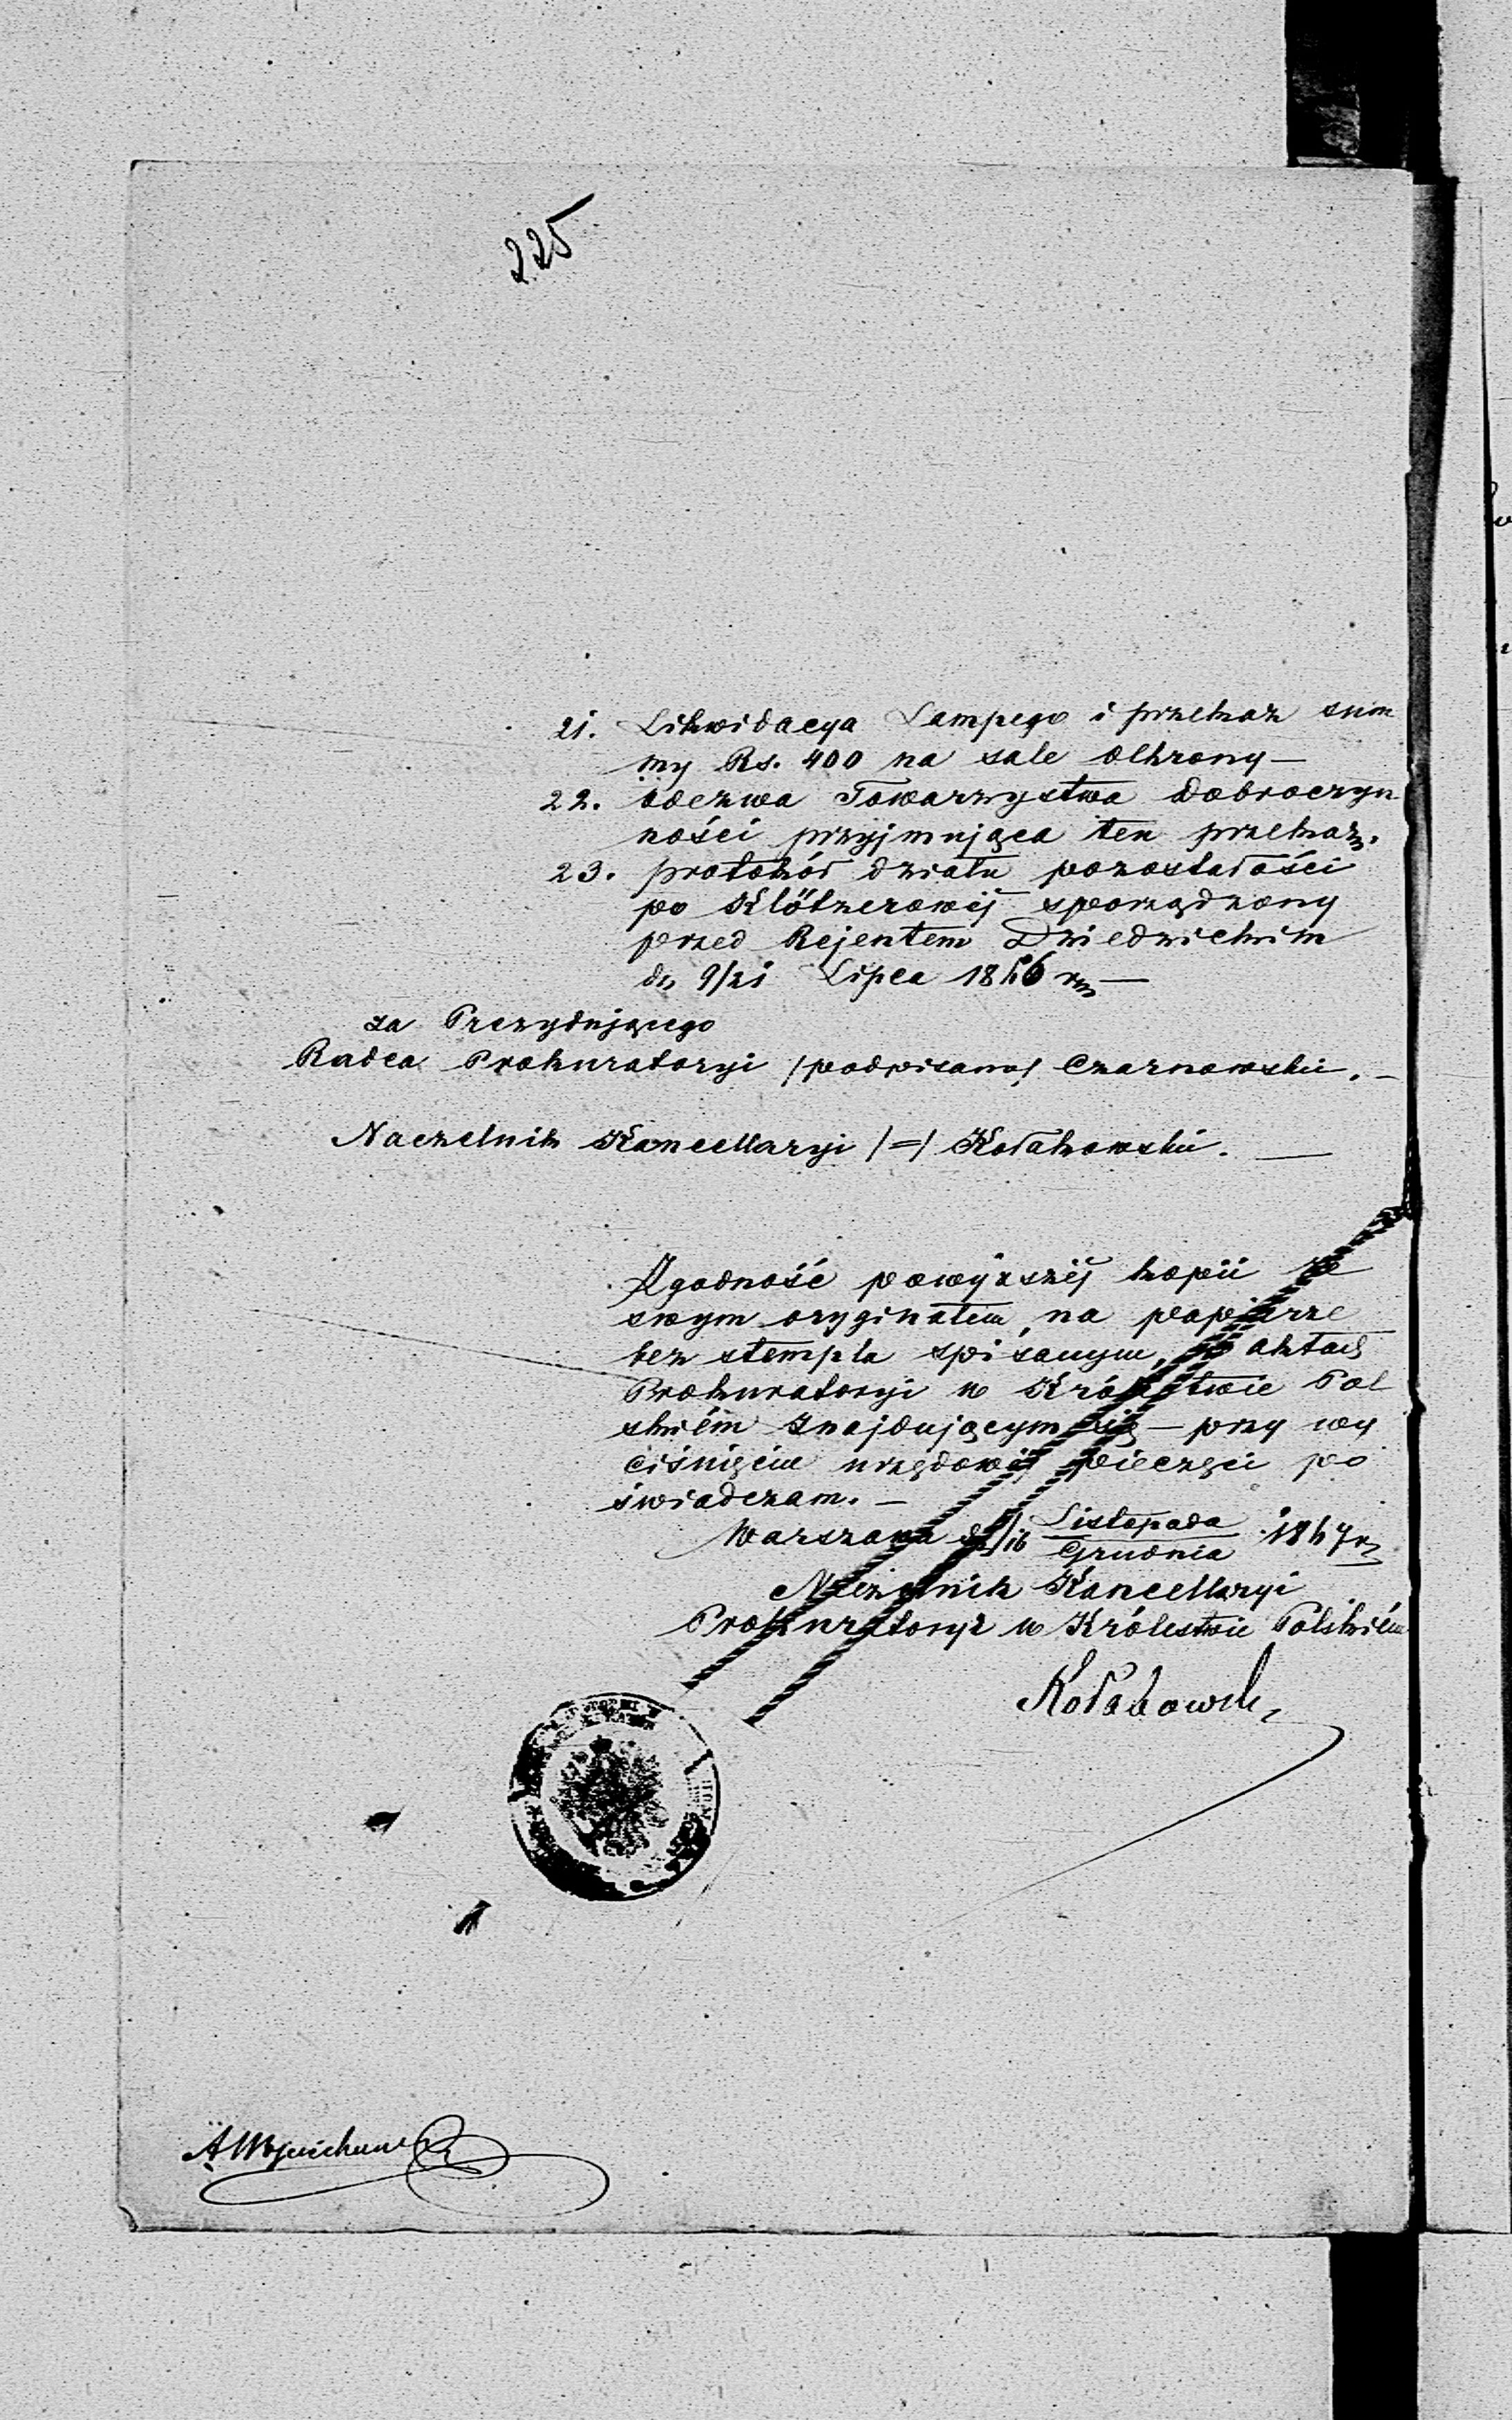 225
21. Likwidacya Lampego i przekaz sum
my Rs. 400 na sale Ochrony —
22. odezwa Towarzystwa Dobroczyn
ności przyjmująca ten przekaz.
23. protokół działu pozostałości
po Klötzerowéj sporządzony
przed Rejentem Dziedzickim
d. 9/21 Lipca 1846 r. —
za Prezydującego
Radca Prokuratoryi /podpisano/ Czarnowski. —
Naczelnik Kancellaryi /=/ Kołakowski. —
Zgodność powyższéj kopii ze
swym oryginałem, na papierze
bez stempla spisanym, w aktach
Prokuratoryi w Królestwie Pol
skiém znajdującym się — przy wy
ciśnięciu urzędowéj pieczęci po
świadczam. —
Warszawa d. /16 Listopada
Grudnia 1847 r.
Naczelnik Kancellaryi
Prokuratoryi w Królestwie Polskiém
Kołakowski